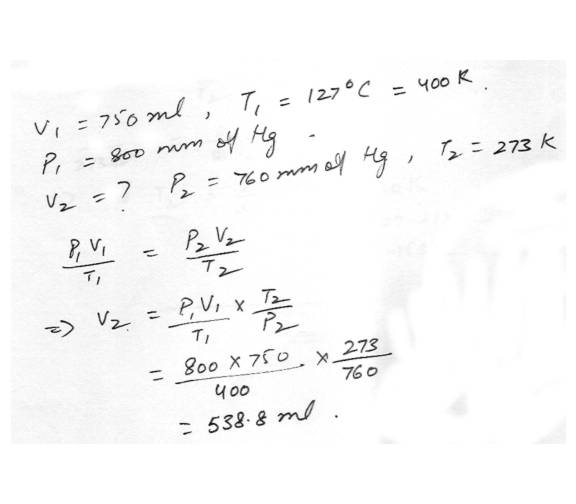 V₁ = 750 ml , T₁ = 127°C = 400 K .
P₁ = 800 mm of Hg .
V₂ = ? P₂ = 760 mm of Hg , T₂ = 273 K
P₁V₁/T₁ = P₂V₂/T₂
=> V₂ = P₁V₁/T₁ × T₂/P₂
= 800 × 750/400 . × 273/760
= 538.8 ml .